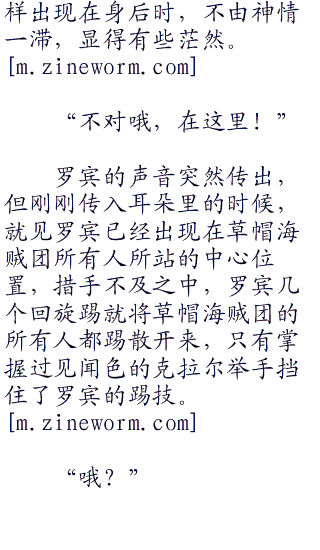 样出现在身后时，不由神情
一滞，显得有些茫然。
[m.zineworm.com]
“不对哦，在这里！”
罗宾的声音突然传出，
但刚刚传入耳朵里的时候，
就见罗宾已经出现在草帽海
贼团所有人所站的中心位
置，措手不及之中，罗宾几
个回旋踢就将草帽海贼团的
所有人都踢散开来，只有掌
握过见闻色的克拉尔举手挡
住了罗宾的踢技。
[m.zineworm.com]
“哦？”